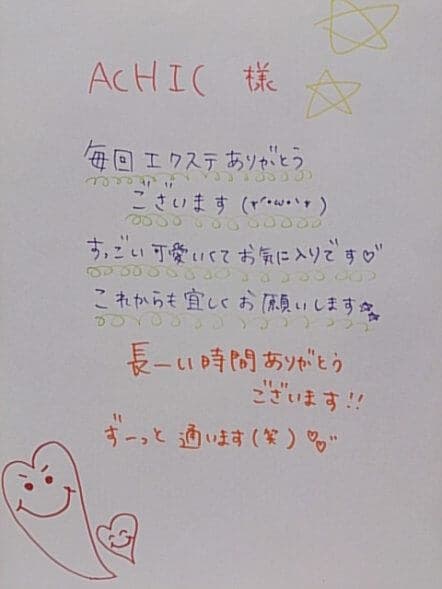 ACHIC 様
毎回 エクステ ありがとう
ございます (*´•ω•`*)
すっごい 可愛いくて お気に入りです♡
これからも 宜しく お願いします☆☆
長ーい時間 ありがとう
ございます!!
ずーっと 通います(笑)♡♡